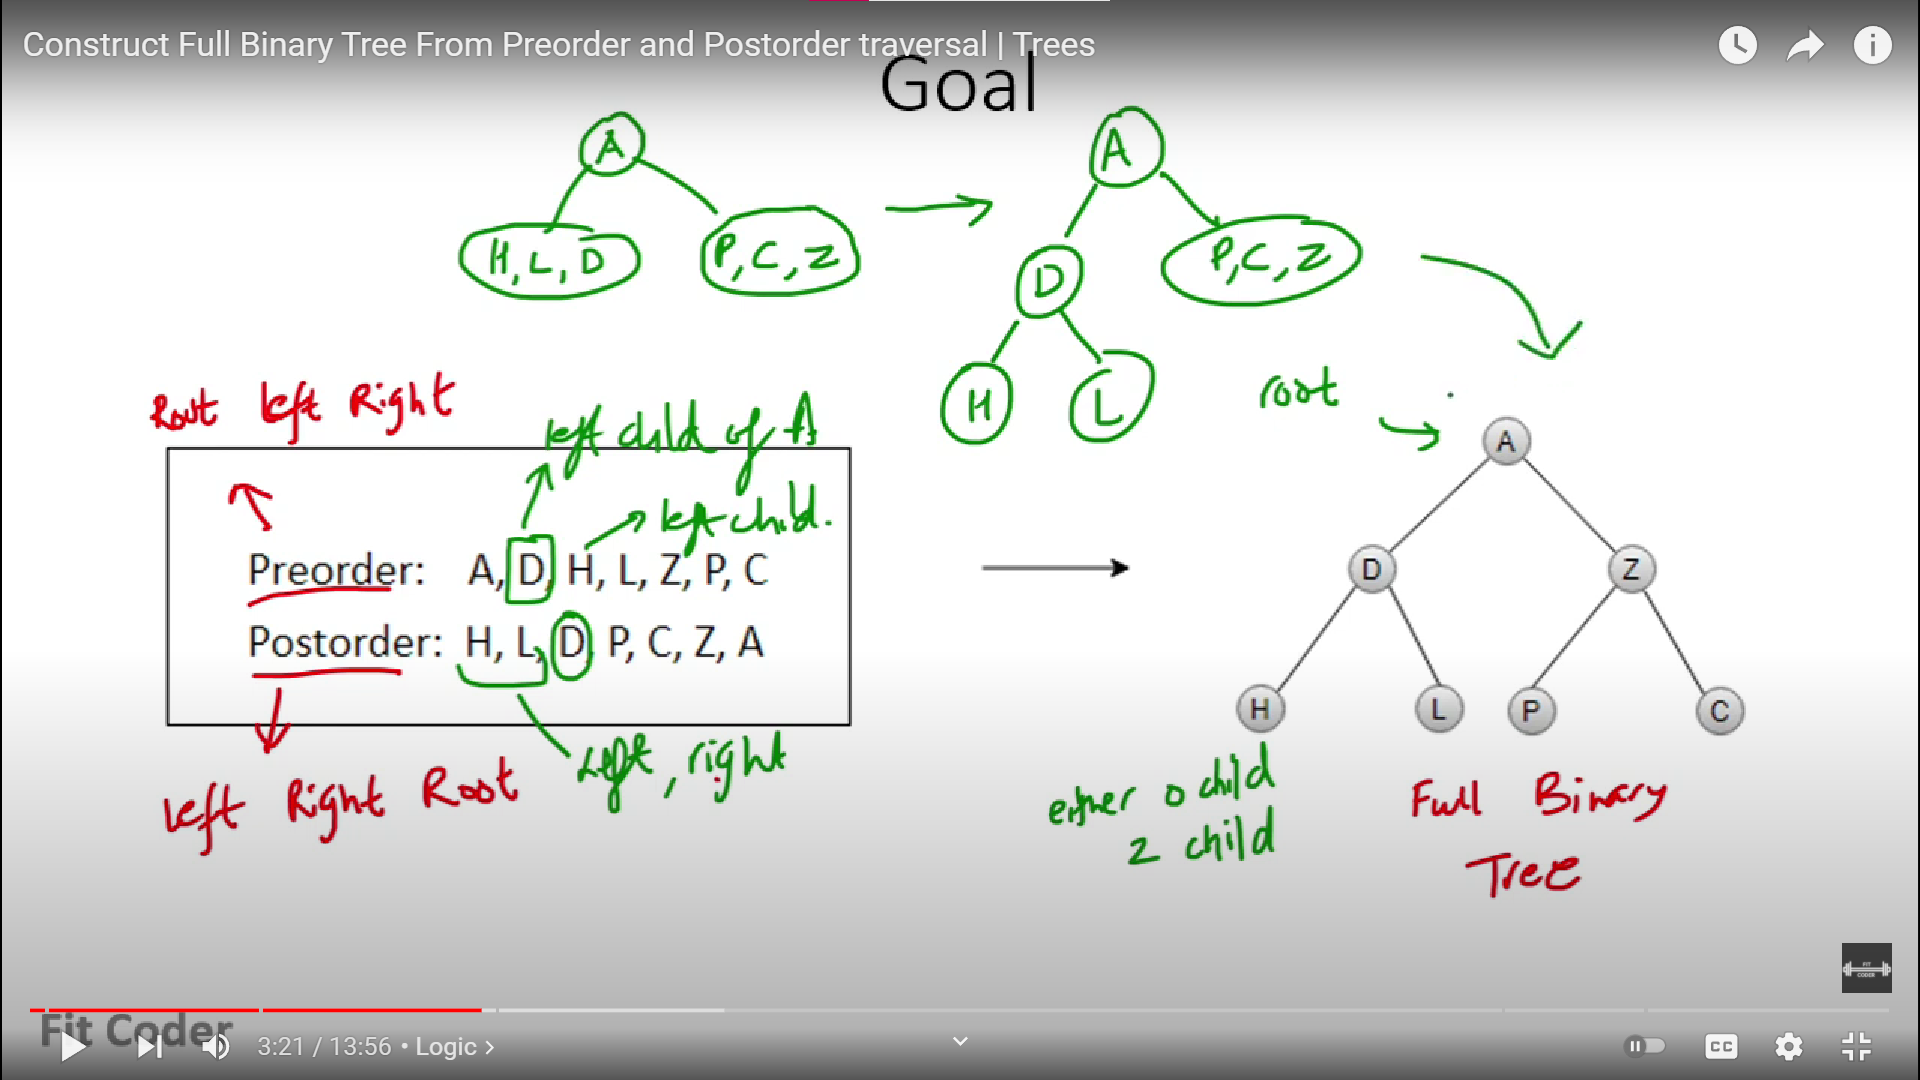 Construct Full Binary Tree From Preorder and Postorder traversal | Trees
Goal
A
H, L, D
P, C, Z
A
D
P, C, Z
H
L
root
Root left Right
left child of A
left child.
Preorder: A, D, H, L, Z, P, C
Postorder: H, L, D, P, C, Z, A
Left, right
left Right Root
A
D
Z
H
L
P
C
either 0 child
2 child
Full Binary
Tree
FIT
CODER
Fit Coder
3:21 / 13:56 • Logic >
CC